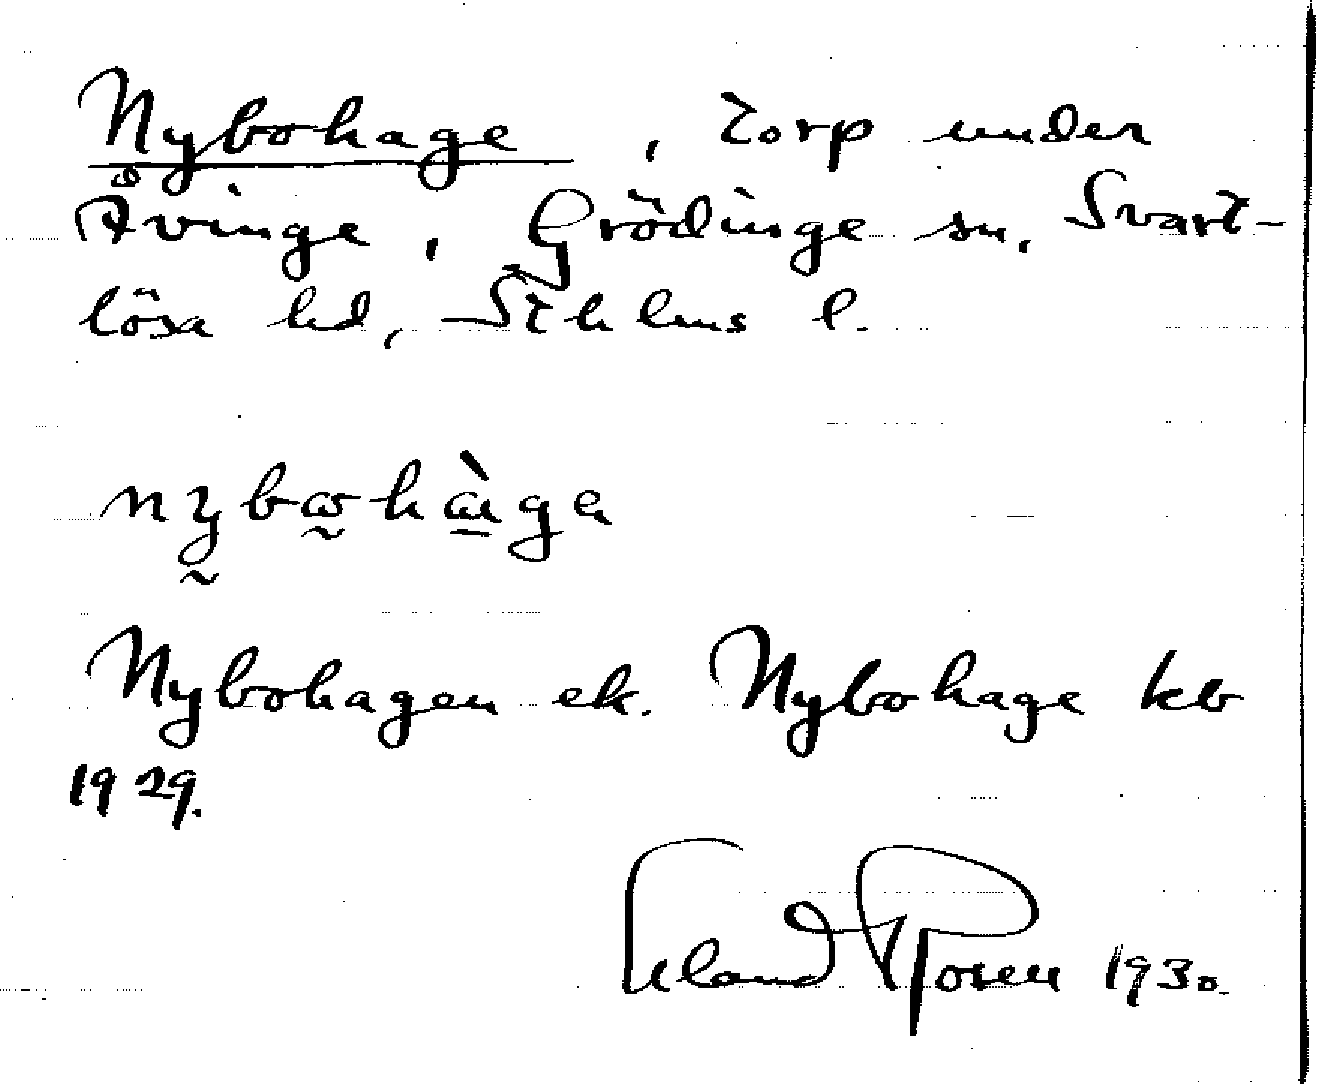 Nybohage, torp under
Åvinge, Grödinge sn, Svart-
lösa hd, Sthlms l.
nybωhàga
Nybohagen ek. Nybohage kb
1929.
Erland Rosell 1930.